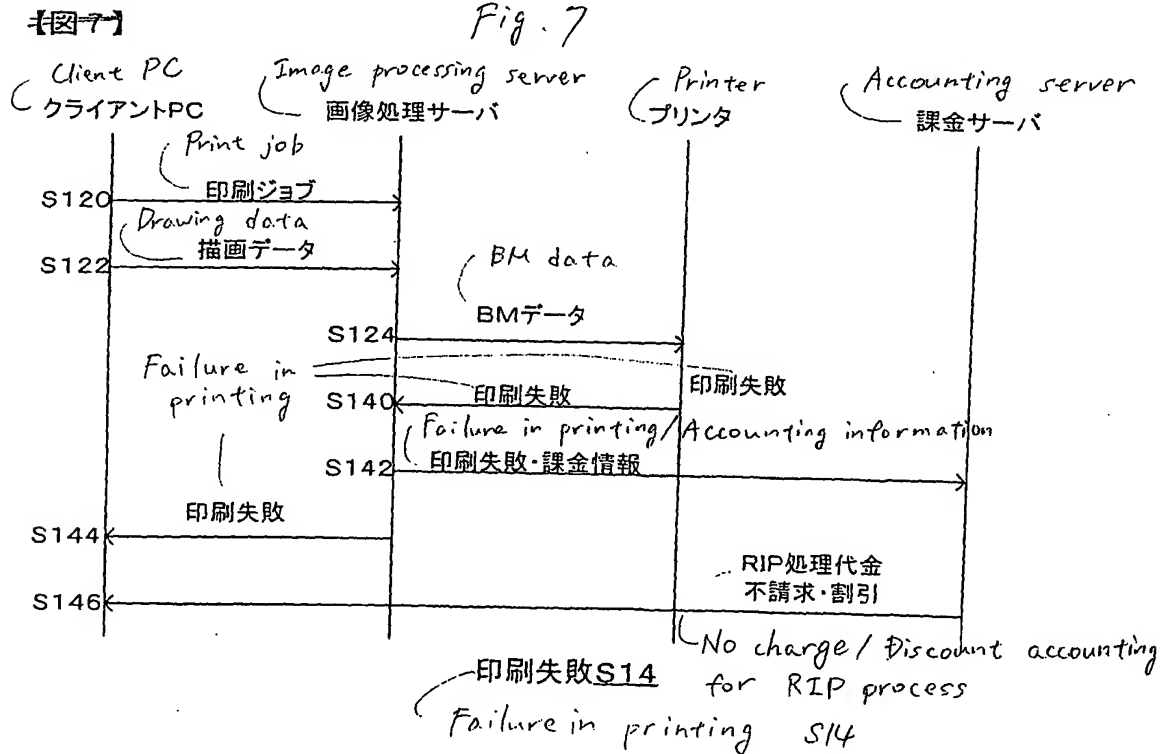 【図7】
Fig. 7
Client PC
クライアントPC
Image processing server
画像処理サーバ
Printer
プリンタ
Accounting server
課金サーバ
Print job
S120
印刷ジョブ
Drawing data
S122
描画データ
BM data
S124
BMデータ
Failure in
printing
印刷失敗
S140
印刷失敗
Failure in printing/Accounting information
S142
印刷失敗・課金情報
印刷失敗
S144
RIP処理代金
不請求・割引
S146
No charge/Discount accounting
for RIP process
印刷失敗S14
Failure in printing S14